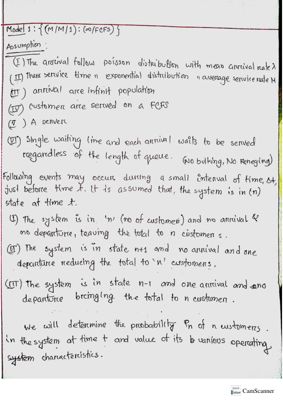 Model 1 : {(M/M/1) : (∞/FCFS)}
Assumption :
(I) The arrival follow poisson distribution with mean arrival rate λ
(II) There service time n exponential distribution n average service rate M
(III) arrival are infinit population
(IV) customer are served on a FCFS
(V) A server
(VI) Single waiting line and each arrival waits to be served
regardless of the length of queue. (No bulking, No reneging)
Following events may occur during a small interval of time, Δt,
just before time t. It is assumed that, the system is in (n)
state at time t.
(I) The system is in 'n' (no of customer) and no arrival &
no departure, leaving the total to n customers.
(II) The system is in state n+1 and no arrival and one
departure reducing the total to 'n' customers.
(III) The system is in state n-1 and one arrival and no
departure bringing the total to n customer.
We will determine the probability Pn of n customers
in the system at time t and value of its various operating
system characteristics.
CamScanner